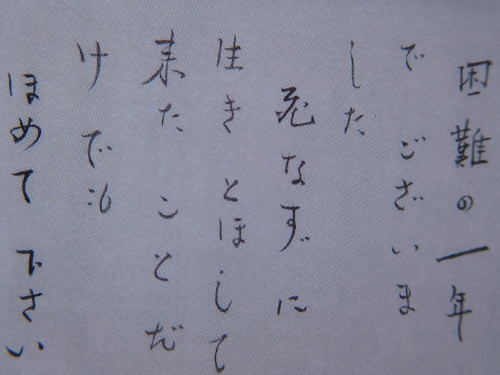 困難の一年
で ございま
した
死なずに
生き とほして
来た ことだ
け でも
ほめて 下さい